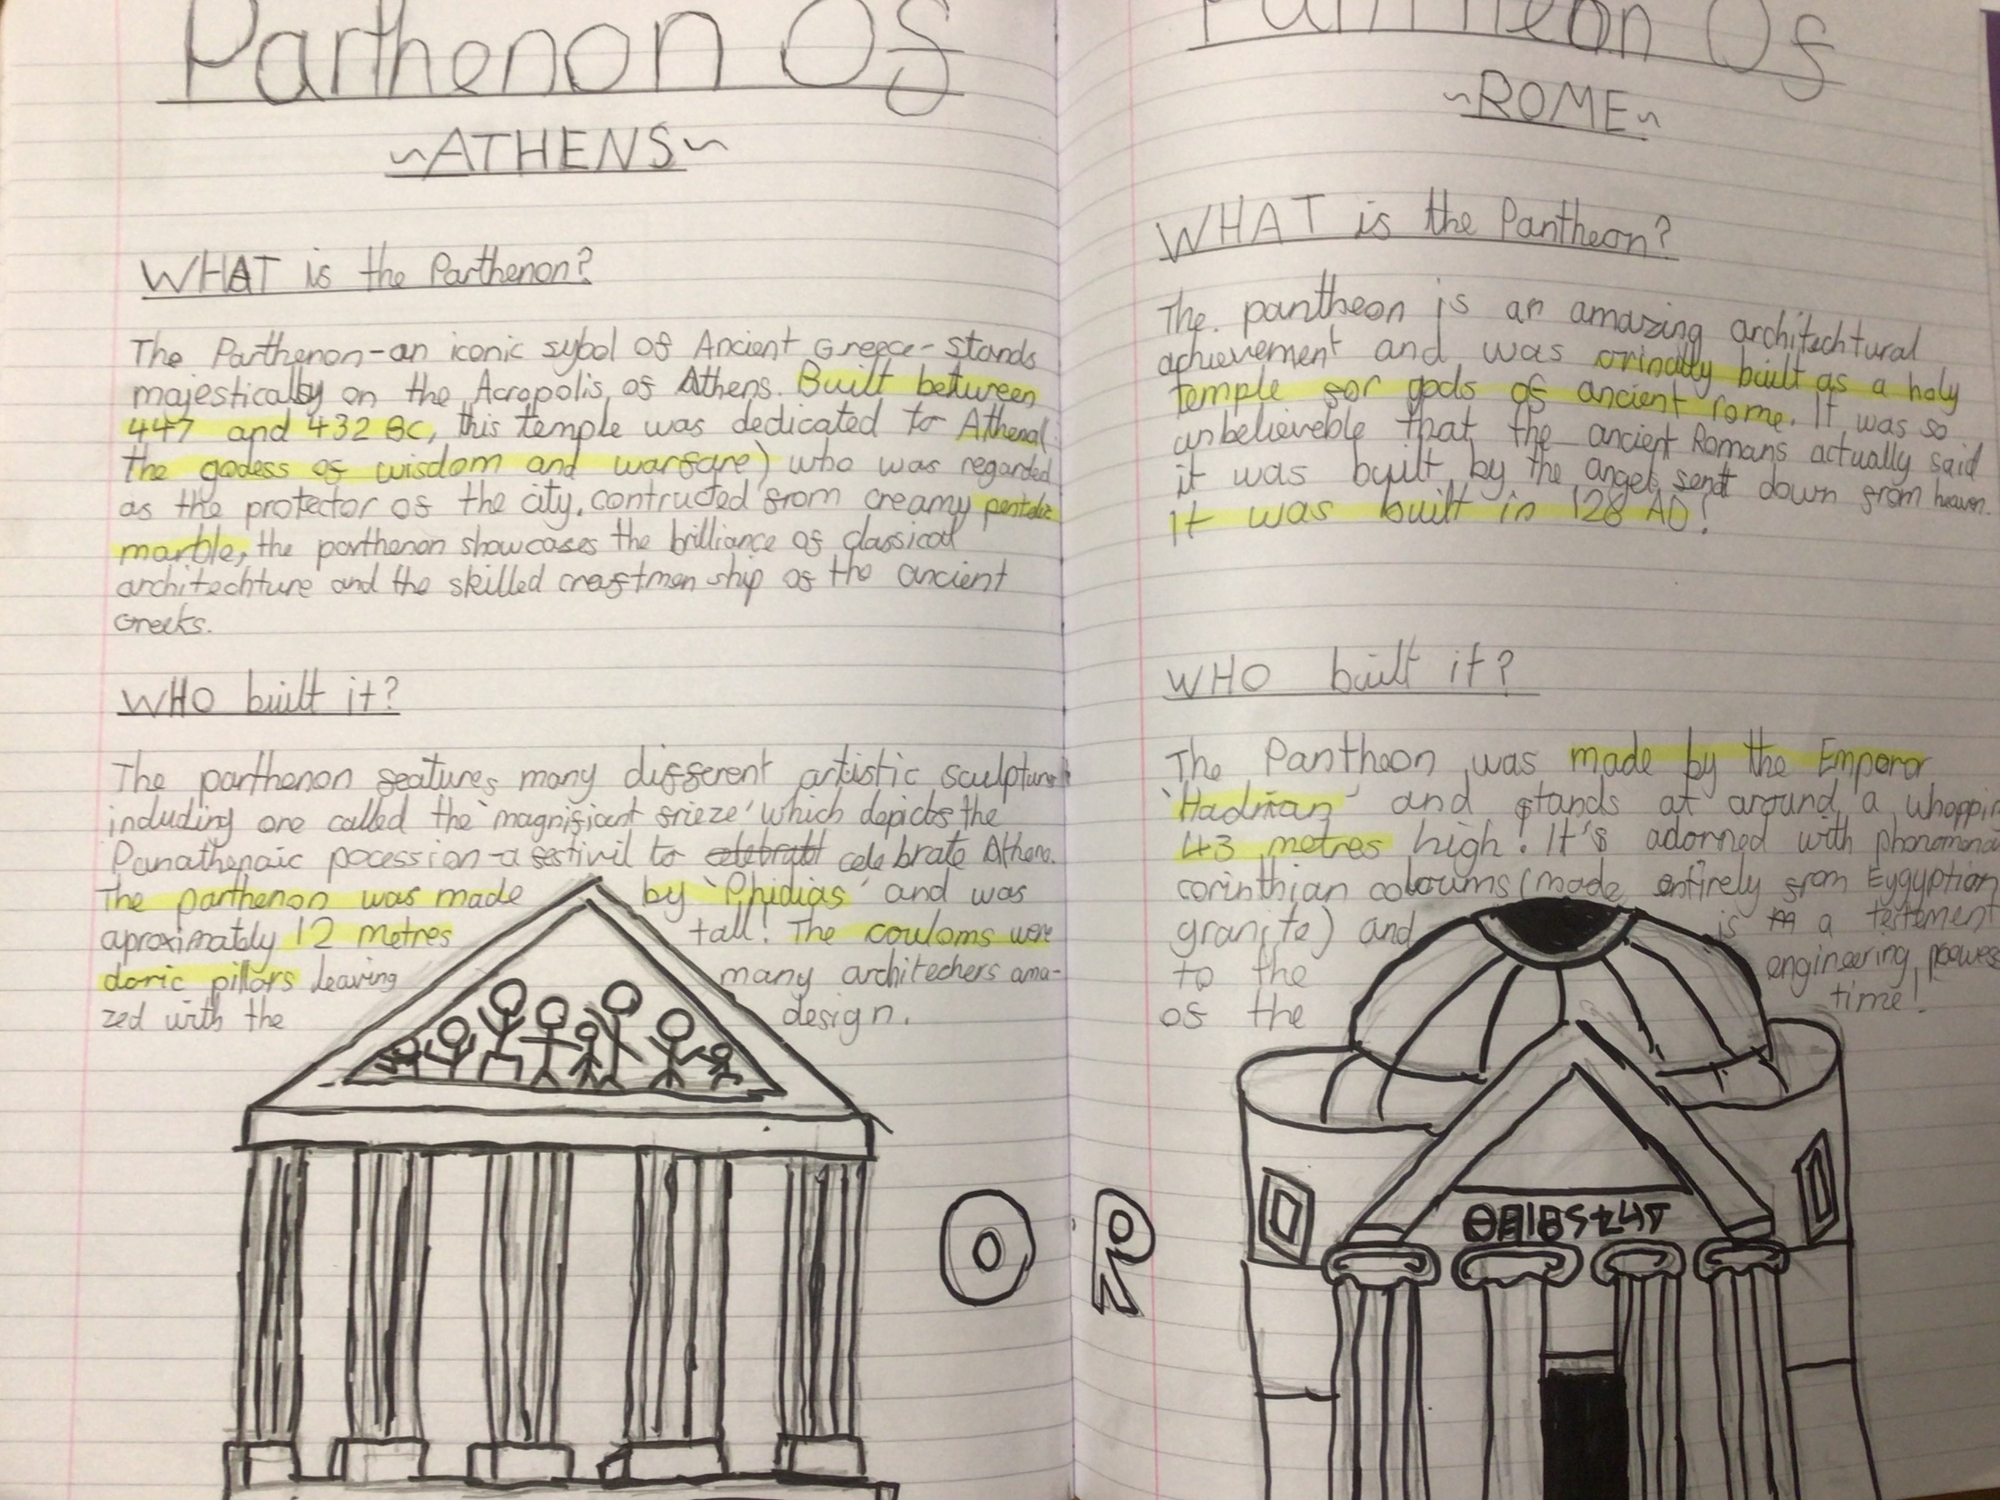 Parthenon Of
~ATHENS~
WHAT is the Parthenon?
The Parthenon-an iconic sybol of Ancient Greece- stands
majestically on the Acropolis of Athens. Built between
447 and 432 BC, this temple was dedicated to Athena(
the godess of wisdom and warfare) who was regarded
as the protector of the city, contructed from creamy
marble, the parthenon showcases the brilliance of classical
architechture and the skilled creaftman ship of the ancient
Greeks.
WHO built it?
The parthenon features many different artistic sculptures
including one called the 'magnificant frieze' which depicts the
Panathenaic pocession-a festivil to celebrate Athena.
The parthenon was made by 'Phidias' and was
aproximately 12 metres tall! The couloms were
doric pillars leaving many architechers ama-
zed with the design.
OR
Pantheon Of
~ROME~
WHAT is the Pantheon?
The pantheon is an amazing architechtural
achievement and was orinally built as a holy
temple for gods of ancient rome. It was so
unbelieveble that the ancient Romans actually said
it was built by the angels sent down from heaven.
It was built in 128 AD!
WHO built it?
The Pantheon was made by the Emperor
'Hadrian' and stands at around a whoppin
43 metres high! It's adorned with phonomena
corinthian coloums (made entirely from Eygyption
granite) and is a testement
to the engineering powess
of the time!